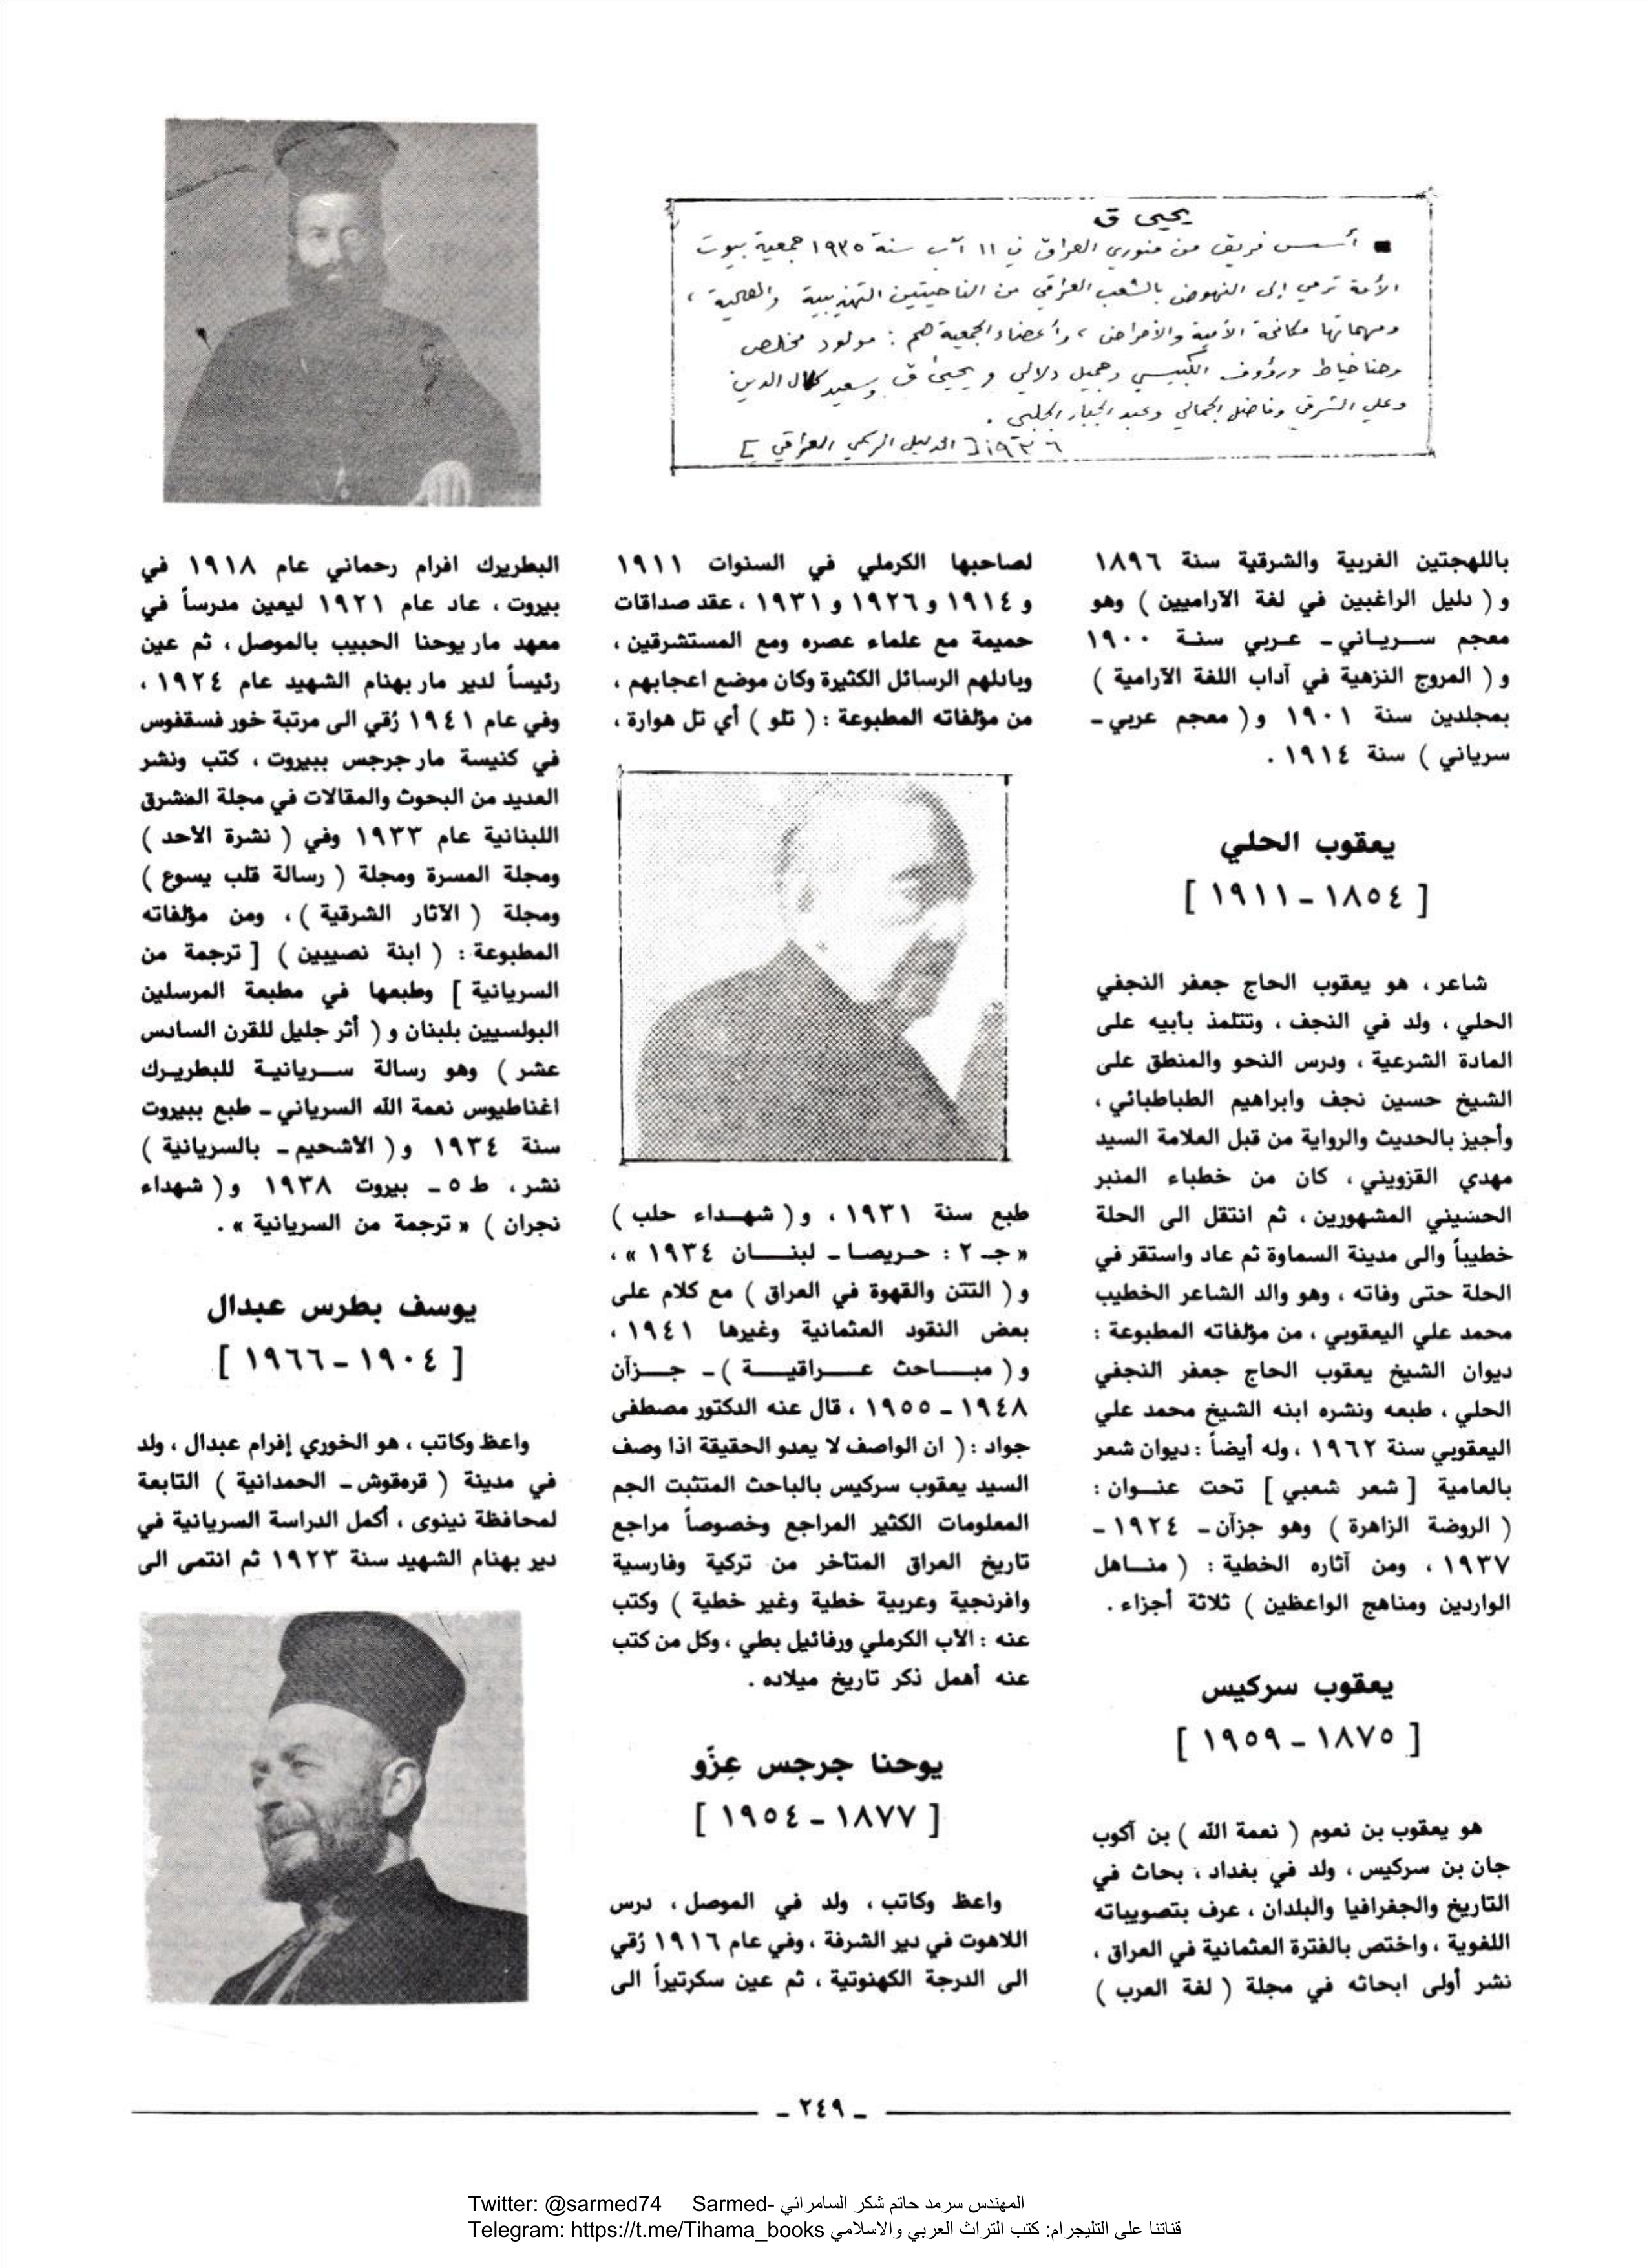 يحيى ق
■ أسس فريق من منوري العراق في ١١ آب سنة ١٩٣٥ جمعية بيوت
الأمة ترمي إلى النهوض بالشعب العراقي من الناحيتين التهذيبية والصحية ،
ومهماتها مكافحة الأمية والأمراض ، وأعضاء الجمعية هم : مولود مخلص
وحنا خياط ورؤوف الكبيسي وجميل دلالي ويحيى ق وسعيد كمال الدين
وعلي الشرقي وفاضل الجمالي وعبد الجبار الجلبي .
[ الدليل الرسمي العراقي ] ١٩٣٦
باللهجتين الغربية والشرقية سنة ١٨٩٦
و ( دليل الراغبين في لغة الآراميين ) وهو
معجم سريـاني - عـربي سنـة ١٩٠٠
و ( المروج النزهية في آداب اللغة الآرامية )
بمجلدين سنة ١٩٠١ و ( معجم عربي -
سرياني ) سنة ١٩١٤ .
يعقوب الحلي
[ ١٨٥٤ - ١٩١١ ]
شاعر ، هو يعقوب الحاج جعفر النجفي
الحلي ، ولد في النجف ، وتتلمذ بأبيه على
المادة الشرعية ، ودرس النحو والمنطق على
الشيخ حسين نجف وابراهيم الطباطبائي ،
وأجيز بالحديث والرواية من قبل العلامة السيد
مهدي القزويني ، كان من خطباء المنبر
الحسيني المشهورين ، ثم انتقل الى الحلة
خطيباً والى مدينة السماوة ثم عاد واستقر في
الحلة حتى وفاته ، وهو والد الشاعر الخطيب
محمد علي اليعقوبي ، من مؤلفاته المطبوعة :
ديوان الشيخ يعقوب الحاج جعفر النجفي
الحلي ، طبعه ونشره ابنه الشيخ محمد علي
اليعقوبي سنة ١٩٦٢ ، وله أيضاً : ديوان شعر
بالعامية [ شعر شعبي ] تحت عنـوان :
( الروضة الزاهرة ) وهو جزآن - ١٩٢٤ -
١٩٣٧ ، ومن آثاره الخطية : ( منـاهل
الواردين ومناهج الواعظين ) ثلاثة أجزاء .
يعقوب سركيس
[ ١٨٧٥ - ١٩٥٩ ]
هو يعقوب بن نعوم ( نعمة الله ) بن آكوب
جان بن سركيس ، ولد في بغداد ، بحاث في
التاريخ والجغرافيا والبلدان ، عرف بتصويباته
اللغوية ، واختص بالفترة العثمانية في العراق ،
نشر أولى ابحاثه في مجلة ( لغة العرب )
لصاحبها الكرملي في السنوات ١٩١١
و ١٩١٤ و ١٩٢٦ و ١٩٣١ ، عقد صداقات
حميمة مع علماء عصره ومع المستشرقين ،
وبادلهم الرسائل الكثيرة وكان موضع اعجابهم ،
من مؤلفاته المطبوعة : ( تلو ) أي تل هوارة ،
طبع سنة ١٩٣١ ، و ( شهـداء حلب )
« جـ ٢ : حريصا - لبنـان ١٩٣٤ » ،
و ( التتن والقهوة في العراق ) مع كلام على
بعض النقود العثمانية وغيرها ١٩٤١ ،
و ( مبـاحث عـراقيـة ) - جـزآن
١٩٤٨ - ١٩٥٥ ، قال عنه الدكتور مصطفى
جواد : ( ان الواصف لا يعدو الحقيقة اذا وصف
السيد يعقوب سركيس بالباحث المتثبت الجم
المعلومات الكثير المراجع وخصوصاً مراجع
تاريخ العراق المتأخر من تركية وفارسية
وافرنجية وعربية خطية وغير خطية ) وكتب
عنه : الأب الكرملي ورفائيل بطي ، وكل من كتب
عنه أهمل ذكر تاريخ ميلاده .
يوحنا جرجس عِزّو
[ ١٨٧٧ - ١٩٥٤ ]
واعظ وكاتب ، ولد في الموصل ، درس
اللاهوت في دير الشرفة ، وفي عام ١٩١٦ رُقي
الى الدرجة الكهنوتية ، ثم عين سكرتيراً الى
البطريرك افرام رحماني عام ١٩١٨ في
بيروت ، عاد عام ١٩٢١ ليعين مدرساً في
معهد مار يوحنا الحبيب بالموصل ، ثم عين
رئيساً لدير مار بهنام الشهيد عام ١٩٢٤ ،
وفي عام ١٩٤١ رُقي الى مرتبة خور فسقفوس
في كنيسة مار جرجس ببيروت ، كتب ونشر
العديد من البحوث والمقالات في مجلة المشرق
اللبنانية عام ١٩٣٣ وفي ( نشرة الأحد )
ومجلة المسرة ومجلة ( رسالة قلب يسوع )
ومجلة ( الآثار الشرقية ) ، ومن مؤلفاته
المطبوعة : ( ابنة نصيبين ) [ ترجمة من
السريانية ] وطبعها في مطبعة المرسلين
البولسيين بلبنان و ( أثر جليل للقرن السادس
عشر ) وهو رسالة سـريانيـة للبطريـرك
اغناطيوس نعمة الله السرياني - طبع ببيروت
سنة ١٩٣٤ و ( الأشحيم - بالسريانية )
نشر ، ط ٥ - بيروت ١٩٣٨ و ( شهداء
نجران ) « ترجمة من السريانية » .
يوسف بطرس عبدال
[ ١٩٠٤ - ١٩٦٦ ]
واعظ وكاتب ، هو الخوري إفرام عبدال ، ولد
في مدينة ( قرهقوش - الحمدانية ) التابعة
لمحافظة نينوى ، أكمل الدراسة السريانية في
دير بهنام الشهيد سنة ١٩٢٣ ثم انتمى الى
- ٢٤٩ -
Twitter: @sarmed74 Sarmed- المهندس سرمد حاتم شكر السامرائي
Telegram: https://t.me/Tihama_books قناتنا على التليجرام: كتب التراث العربي والاسلامي